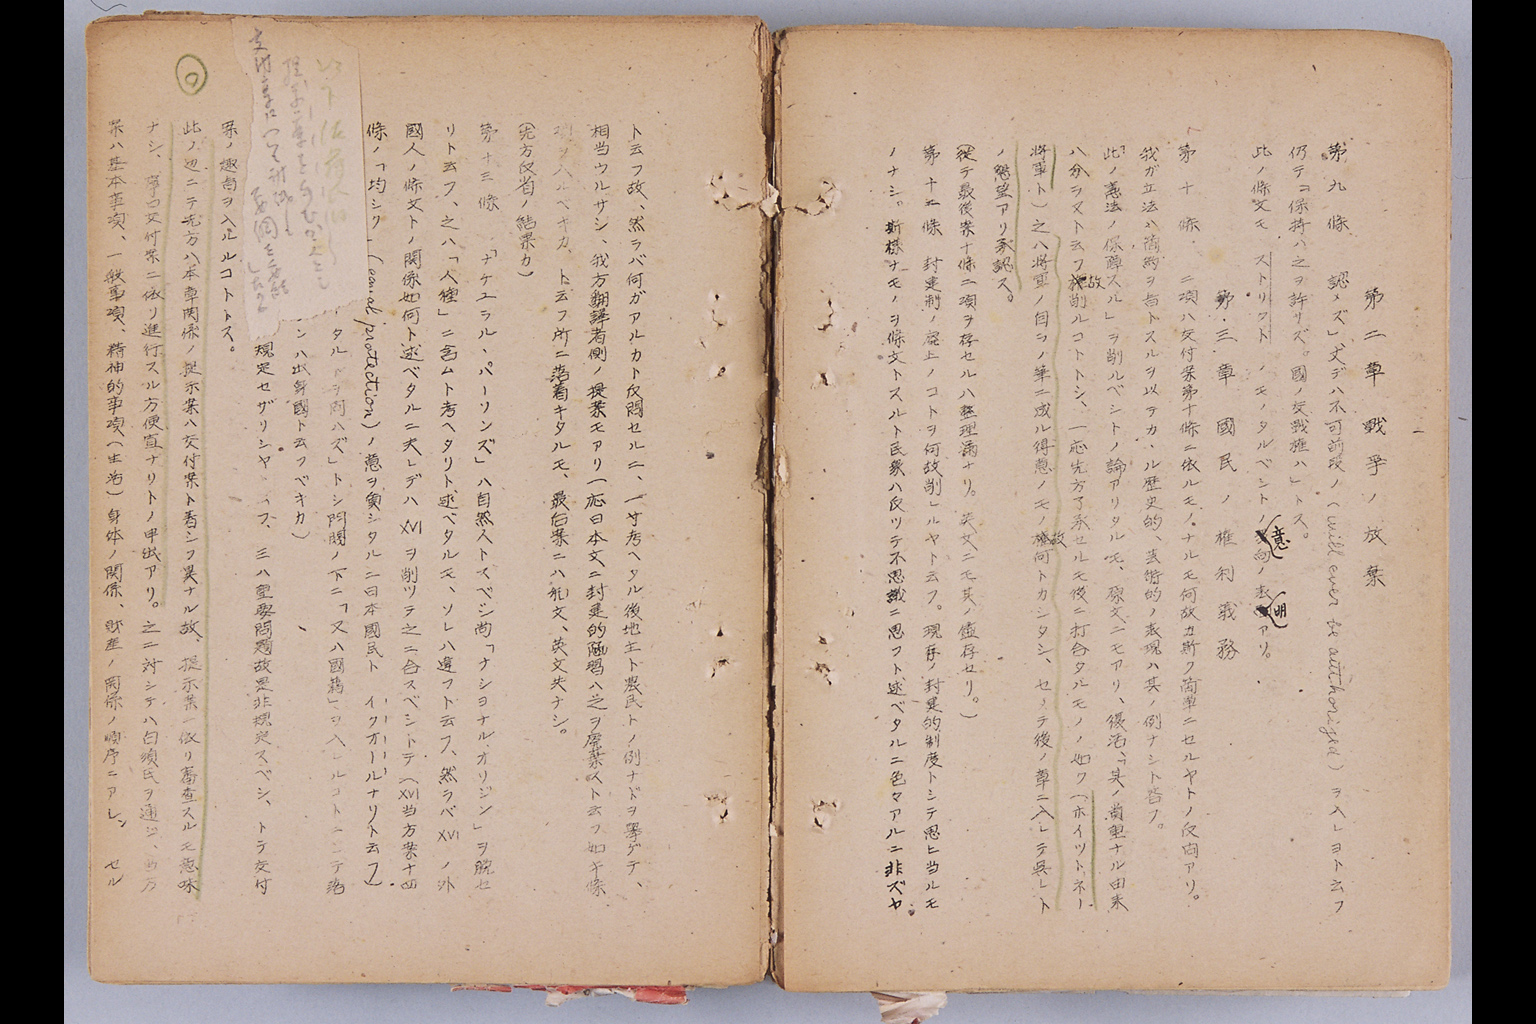 第二章 戦争ノ放棄
第九條 認メズ」丈デハ不可前段ノ(will ever be authorized)ヲ入レヨト云フ
仍テ「保持ハ之ヲ許サズ。國ノ交戦権ハ」トス。
此ノ條文モ ストリクト ノモノタルベシトノ意向ノ表明アリ。
第三章 國民ノ権利義務
第十條 二項ハ交付案第十條ニ依ルモノナルモ何故カ斯ク簡単ニセルヤトノ反問アリ。
我ガ立法ハ簡約ヲ旨トスルヲ以テカヽル歴史的、芸術的ノ表現ハ其ノ例ナシト答フ。
此ノ憲法ノ保障スル」ヲ削ルベシトノ論アリタルモ、原文ニモアリ、復活、「其ノ貴重ナル由来
八分ヲ又ト云フ故削ルコトトシ、一応先方了承セルモ後ニ打合タルモノノ如ク(ホイツトネー
将軍ト)之ハ将軍ノ自ラノ筆ニ成ル得意ノモノ故何トカシタシ、セメテ後ノ章ニ入レテ呉レト
ノ懇望アリ承認ス。
(従テ最後案十條二項ヲ存セルハ整理漏ナリ。英文ニモ其ノ儘存セリ。)
第十二條 封建制ノ廃止ノコトヲ何故削レルヤト云フ。現存ノ封建的制度トシテ思ヒ当ルモ
ノナシ。斯様ナモノヲ條文トスルト民衆ハ反ツテ不思議ニ思フト述ベタルニ色々アルニ非ズヤ
ト云フ故、然ラバ何ガアルカト反問セルニ、一寸考ヘタル後地主ト農民トノ例ナドヲ擧ゲテ、
相当ウルサシ、我方翻譯者側ノ提案モアリ一応日本文ニ封建的陋習ハ之ヲ廃棄スト云フ如キ條
項ヲ ハルベキカ、ト云フ所ニ落着キタルモ、最后案ニハ和文、英文共ナシ。
(先方反省ノ結果カ)
第十三條 「ナチユラル、パーソンズ」ハ自然人トスベシ尚「ナシヨナル、オリジン」ヲ脱セ
リト云フ、之ハ「人種」ニ含ムト考ヘタリト述ベタルモ、ソレハ違フト云フ、然ラバXVIノ外
國人ノ條文トノ関係如何ト述ベタルニ夫レデハXVIヲ削ツテ之ニ合スベシトテ(XVI当方案十四
條ノ「均シク」(equal protection)ノ意ヲ寓シタルニ日本國民ト イクオールナリト云フ)
タルトヲ問ハズ」トシ門閥ノ下ニ「又ハ國籍」ヲ入レルコトニシテ落
ンハ出身國ト云フベキカ)
規定セザリシヤ フ、三ハ重要問題故是非規定スベシ、トテ交付
案ノ趣旨ヲ入ルルコトトス。
此ノ辺ニテ先方ハ本章関係ノ提示案ハ交付案ト著シク異ナル故、提示案ニ依リ審査スルモ意味
ナシ、寧ロ交付案ニ依リ進行スル方便宜ナリトノ申出アリ。之ニ対シテハ白須氏ヲ通ジ、当方
案ハ基本事項、一般事項、精神的事項(生活)身体ノ関係、財産ノ関係ノ順序ニアレン セル